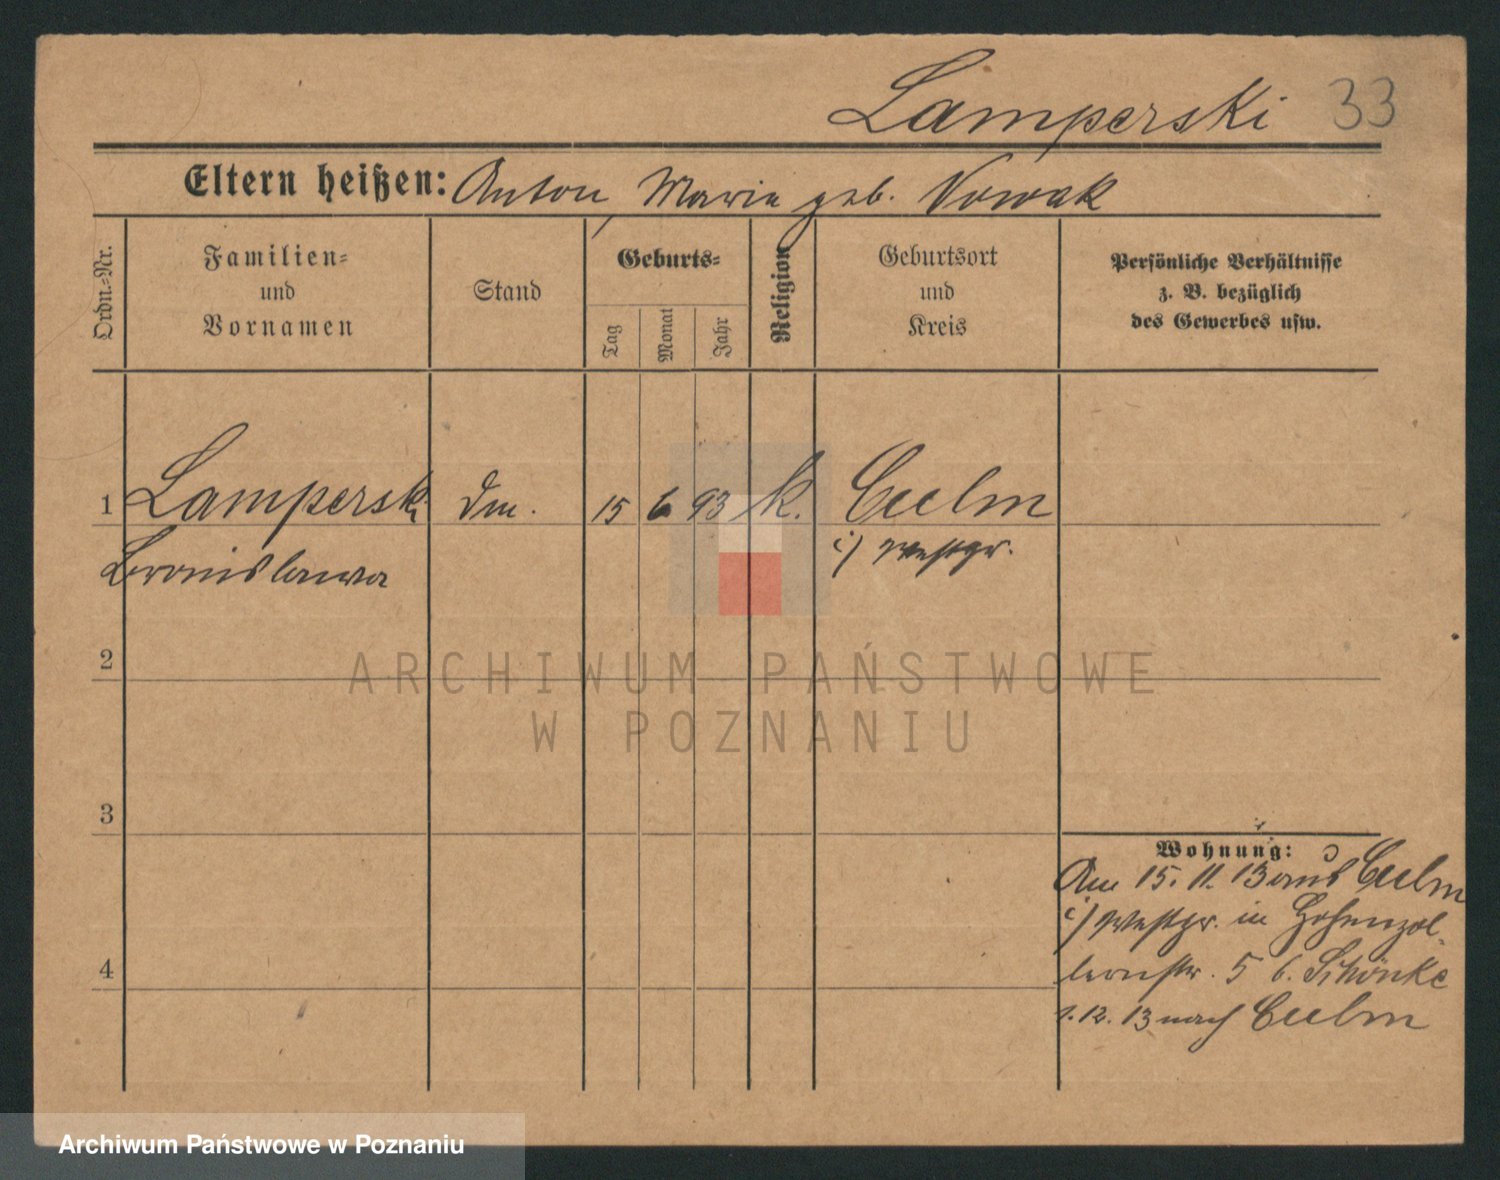 Lamperski 33
Eltern heißen: Anton, Marie geb. Nowak
Ordn.-Nr.
Familien- und Vornamen
Stand
Geburts-
Tag
Monat
Jahr
Religion
Geburtsort und Kreis
Persönliche Verhältnisse
z. B. bezüglich
des Gewerbes usw.
1 Lamperski 15 6 93 k. Culm
Bronislawa i/ Westpr.
2
3
4
Wohnung:
Am 15. 11. 13 aus Culm
i/ Westpr. in Hohenzol-
lernstr. 5 b. Schönke
1. 12. 13 nach Culm
ARCHIWUM PAŃSTWOWE
W POZNANIU
Archiwum Państwowe w Poznaniu